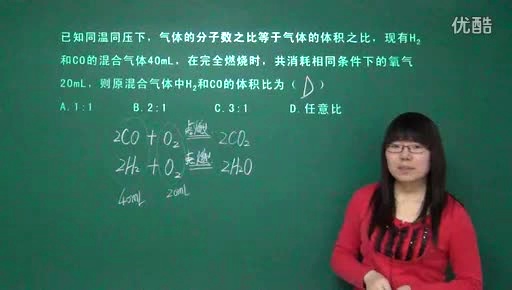 优酷
已知同温同压下，气体的分子数之比等于气体的体积之比，现有H₂
和CO的混合气体40mL，在完全燃烧时，共消耗相同条件下的氧气
20mL，则原混合气体中H₂和CO的体积比为（ D ）
A. 1:1 B. 2:1 C. 3:1 D. 任意比
2CO + O₂ 点燃 2CO₂
2H₂ + O₂ 点燃 2H₂O
40mL 20mL